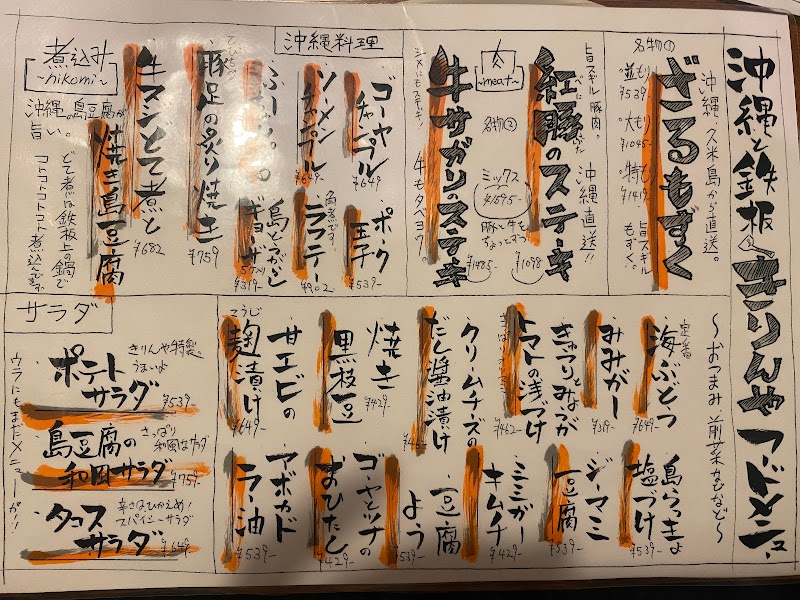 沖縄と鉄板 きりんや フードメニュー
〜おつまみ 前菜などなど〜
名物①
ざるもずく
沖縄・久米島から直送。
旨スギル
もずく。
並もり
¥539
大もり
¥1045
特もり
¥1419
肉
~meat~
旨スギル豚肉。
紅豚のステーキ
べにぶた
沖縄直送!!
¥1098
名物②
ミックス
¥1595
豚と牛を
ちょっとずつ
牛サガリのステーキ
¥1485
シメにもステーキ。
牛もタベヨウ
沖縄料理
ゴーヤ
チャンプル
¥649-
ソーメン
チャンプル
¥649-
ポーク
玉子
¥539-
角煮です。
ラフテー
¥902
島とうがらし
ギョーザ
¥319-
てびち
豚足の炙り焼き
¥759
煮込み
~nikomi~
牛スジとて煮と
¥682
沖縄の島豆腐が
旨い。
焼き島豆腐
どて煮は鉄板上の鍋で
コトコトコトコト煮込んでます
定番
海ぶどう
¥649-
みみがー
きゅうりとみょうが
トマトの浅づけ
¥462-
クリームチーズの
だし醤油漬け
焼き
黒枝豆
¥429-
甘エビの
こうじ
麹漬け
¥649-
島らっきょ
塩づけ
¥539-
ジーマミ
豆腐
¥539-
ミミガー
キムチ
豆腐
よう
¥539-
ゴーヤとツナの
おひたし
¥429-
アボカド
ラー油
¥539-
サラダ
きりんや特製。
うまいよ
ポテト
サラダ
¥539-
さっぱり
和風なサラダ
島豆腐の
和風サラダ
¥759-
辛さはひかえめ!
スパイシーサラダ
タコス
サラダ
¥649-
ウラにもまだメニューが!!